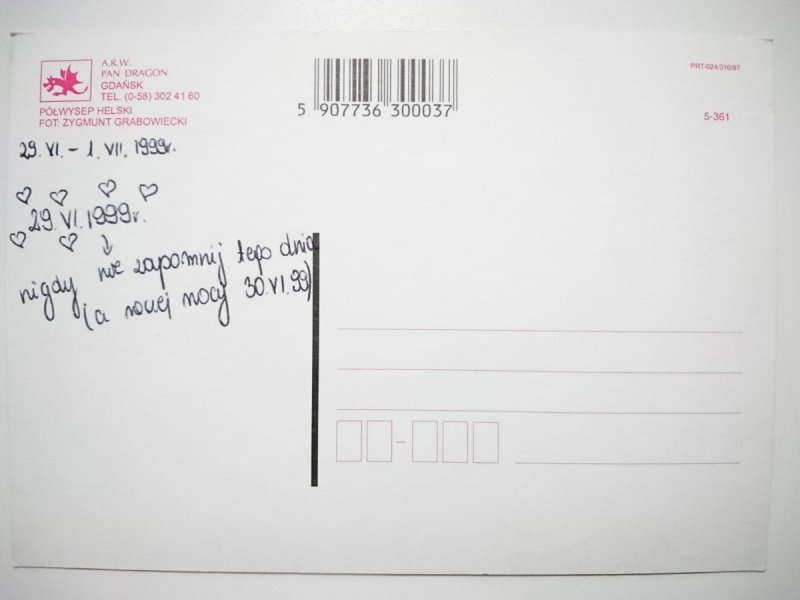 A.R.W.
PAN DRAGON
GDAŃSK
TEL. (0-58) 302 41 60
PÓŁWYSEP HELSKI
FOT: ZYGMUNT GRABOWIECKI
5 907736 300037
PRT-024/310/97
5-361
29. VI. – 1. VII. 1999r.
29. VI. 1999r.
nigdy nie zapomnij tego dnia
(a nocy 30.VI.99)